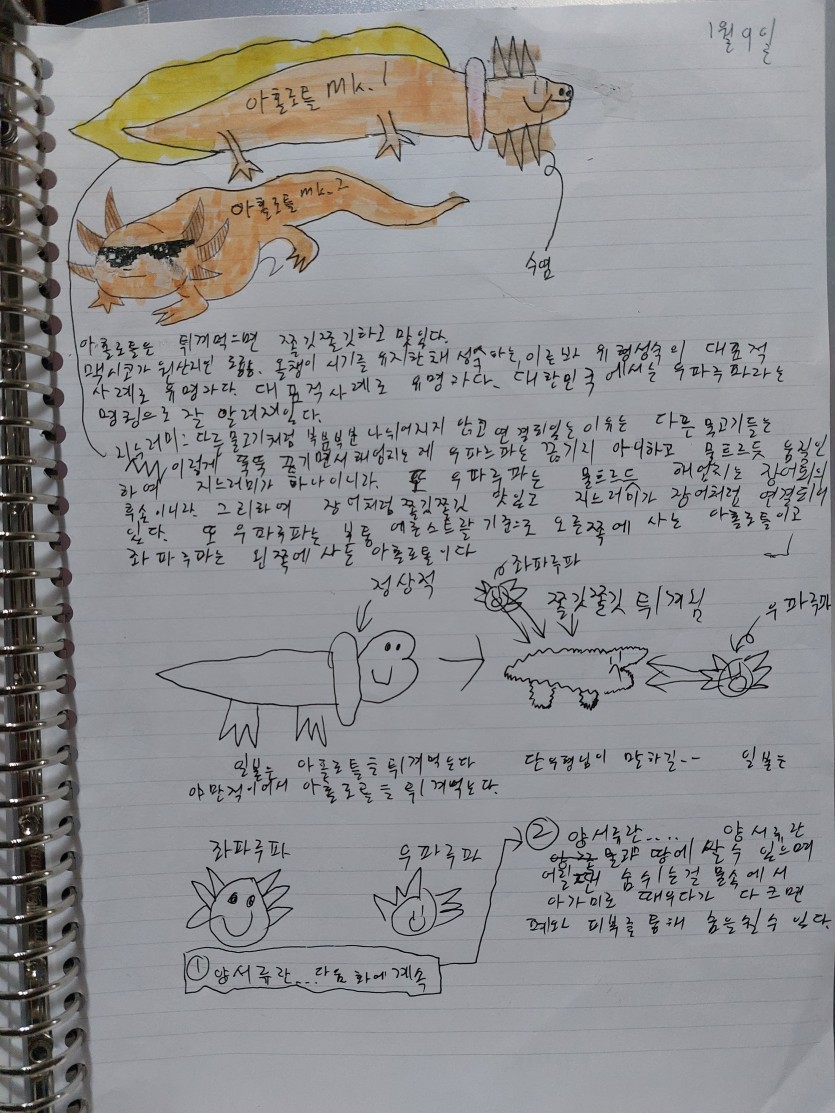 1월 9일
아홀로틀 mk.1
아홀로틀 mk.2
수염
아홀로틀는 튀겨먹으면 쫄깃쫄깃하고 맛있다.
맥시코가 원산지인 동물. 올챙이 시기를 유지한채 성숙하는, 이른바 유형성숙의 대표적
사례로 유명가다. 대표적사례로 유명가다. 대한민국에서는 우파루파라는
명칭으로 잘 알려져있다.
지느러미: 다른 물고기처럼 부분 나뉘어지지 않고 연결되있는 이유는 다른 물고기들는
이렇게 뚝뚝 끊기면서 해엄치는게 우파루파는 끊기지 아니하고 물흐르듯 움직인
하여 지느러미가 하나이니라. 또 우파루파는 물흐르듯 해엄치는 장어의
후손이니라. 그리하여 장어처럼 쫄깃쫄깃 맛있고 지느러미가 장어처럼 연결되어
있다. 또 우파루파는 보통 기준으로 오른쪽에 사는 아홀로틀이고
좌파루파는 왼쪽에 사는 아홀로틀이다
정상적
좌파루파
쫄깃쫄깃 튀겨짐
우파루파
일본는 아홀로틀을 튀겨먹는다 단우형님이 말하길-- 일본는
야만적이어서 아홀로틀을 튀겨먹는다.
좌파루파
우파루파
① 양서류란... 다음 화에 계속
② 양서류란.... 양서류란
물과 땅에 쌀수 있으며
어릴땐 숨쉬는걸 물속에서
아가미로 때우다가 다크면
폐와 피부를 통해 숨을쉴수 있다.